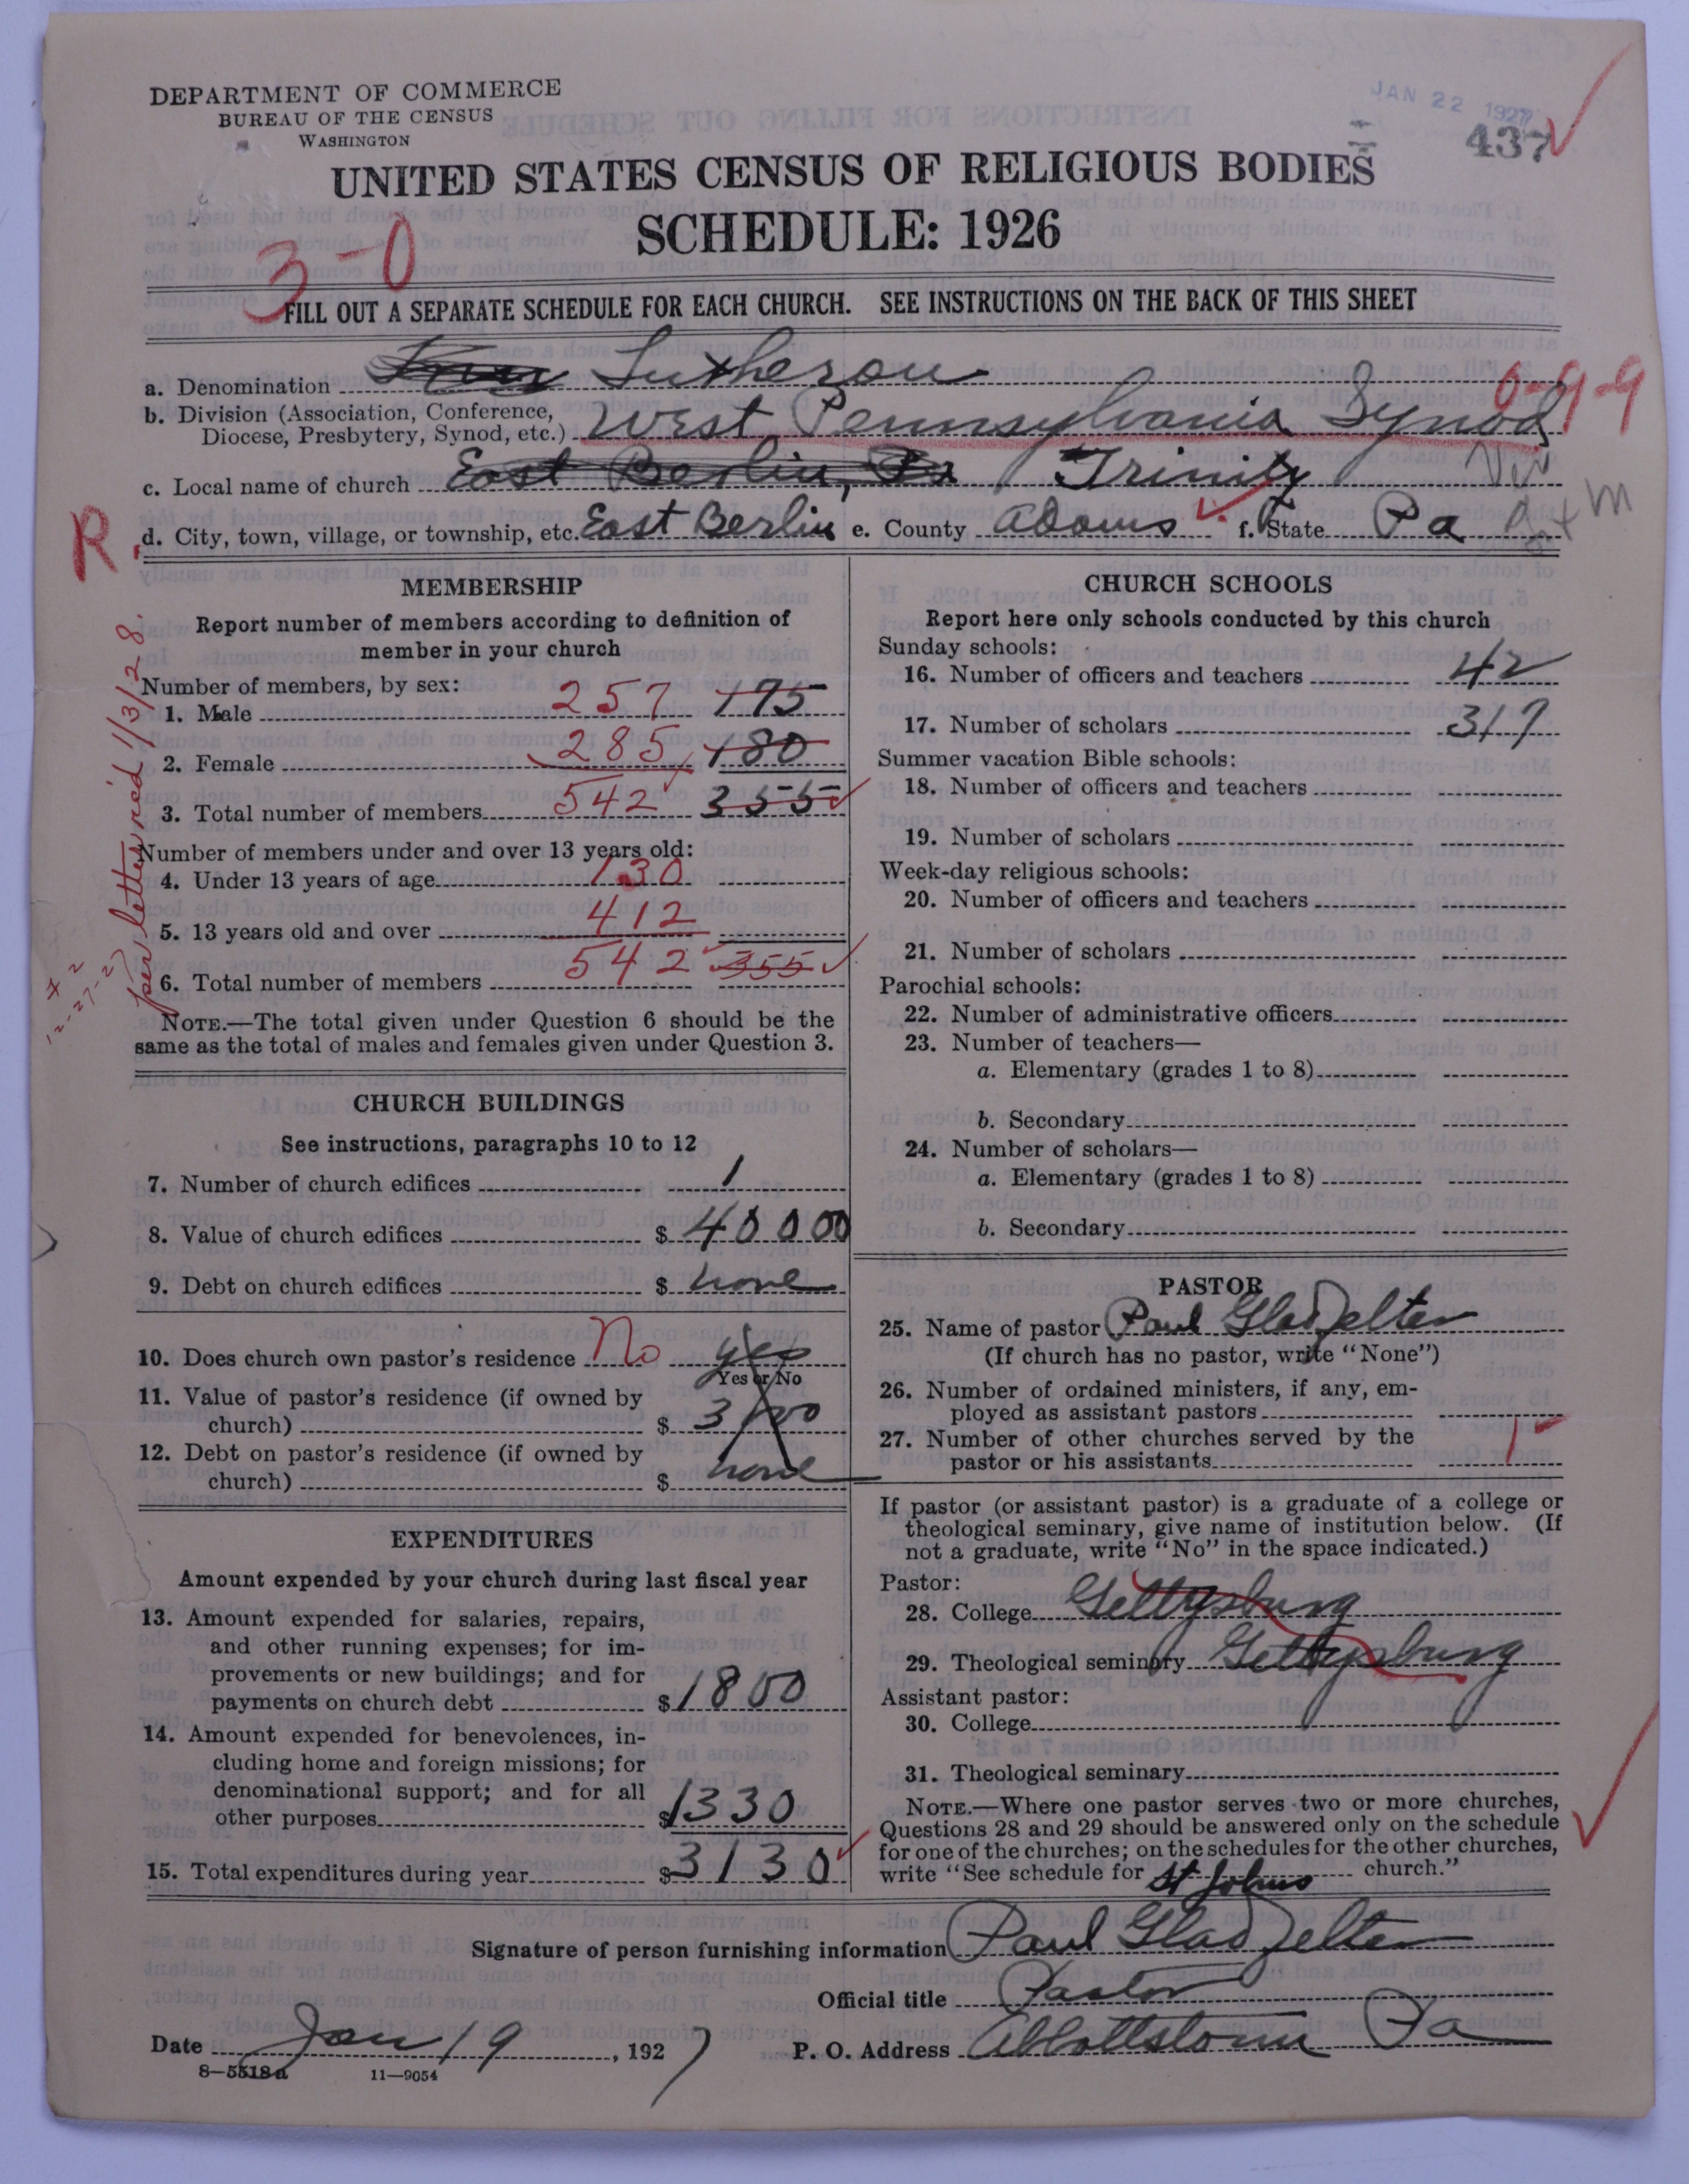 DEPARTMENT OF COMMERCE
BUREAU OF THE CENSUS
WASHINGTON
JAN 22 1927
437
UNITED STATES CENSUS OF RELIGIOUS BODIES
SCHEDULE: 1926
3-0
FILL OUT A SEPARATE SCHEDULE FOR EACH CHURCH. SEE INSTRUCTIONS ON THE BACK OF THIS SHEET
a. Denomination Lutheran
0-9-9
b. Division (Association, Conference, Diocese, Presbytery, Synod, etc.) West Pennsylvania Synod
c. Local name of church East Berlin, Pa Trinity
R
d. City, town, village, or township, etc. East Berlin e. County Adams f. State Pa
per letter rec'd 1/3/28.
12-27-27
MEMBERSHIP
Report number of members according to definition of
member in your church
Number of members, by sex:
1. Male 257 175
2. Female 285 180
3. Total number of members 542 355
Number of members under and over 13 years old:
4. Under 13 years of age 130
5. 13 years old and over 412
6. Total number of members 542 355
NOTE.—The total given under Question 6 should be the
same as the total of males and females given under Question 3.
CHURCH BUILDINGS
See instructions, paragraphs 10 to 12
7. Number of church edifices 1
8. Value of church edifices $ 40000
9. Debt on church edifices $ none
10. Does church own pastor's residence No yes
Yes or No
11. Value of pastor's residence (if owned by
church) $ 3500
12. Debt on pastor's residence (if owned by
church) $ none
EXPENDITURES
Amount expended by your church during last fiscal year
13. Amount expended for salaries, repairs,
and other running expenses; for im-
provements or new buildings; and for
payments on church debt $ 1800
14. Amount expended for benevolences, in-
cluding home and foreign missions; for
denominational support; and for all
other purposes $ 1330
15. Total expenditures during year $ 3130
CHURCH SCHOOLS
Report here only schools conducted by this church
Sunday schools:
16. Number of officers and teachers 42
17. Number of scholars 317
Summer vacation Bible schools:
18. Number of officers and teachers
19. Number of scholars
Week-day religious schools:
20. Number of officers and teachers
21. Number of scholars
Parochial schools:
22. Number of administrative officers
23. Number of teachers—
a. Elementary (grades 1 to 8)
b. Secondary
24. Number of scholars—
a. Elementary (grades 1 to 8)
b. Secondary
PASTOR
25. Name of pastor Paul Gladfelter
(If church has no pastor, write "None")
26. Number of ordained ministers, if any, em-
ployed as assistant pastors
27. Number of other churches served by the
pastor or his assistants 1
If pastor (or assistant pastor) is a graduate of a college or
theological seminary, give name of institution below. (If
not a graduate, write "No" in the space indicated.)
Pastor:
28. College Gettysburg
29. Theological seminary Gettysburg
Assistant pastor:
30. College
31. Theological seminary
NOTE.—Where one pastor serves two or more churches,
Questions 28 and 29 should be answered only on the schedule
for one of the churches; on the schedules for the other churches,
write "See schedule for St Johns church."
Signature of person furnishing information Paul Gladfelter
Official title Pastor
Date Jan 19, 1927 P. O. Address Abbottstown Pa
8—5518a 11—9054